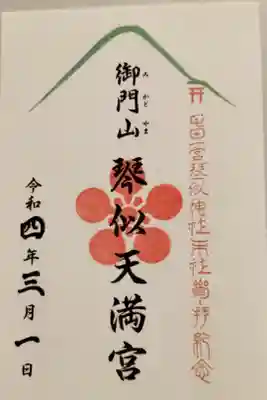 琴似神社末社 拝紀念
御門山 琴似天満宮
みかどやま
令和四年三月一日